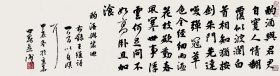 酌酒與君君
自寬人情翻
覆似波瀾白
首相知猶按
劍朱門先達
笑彈冠草色
全經細雨濕
花枝欲動春
風寒世事浮
雲何足問不
如高臥且加
餐
酌酒與裴迪